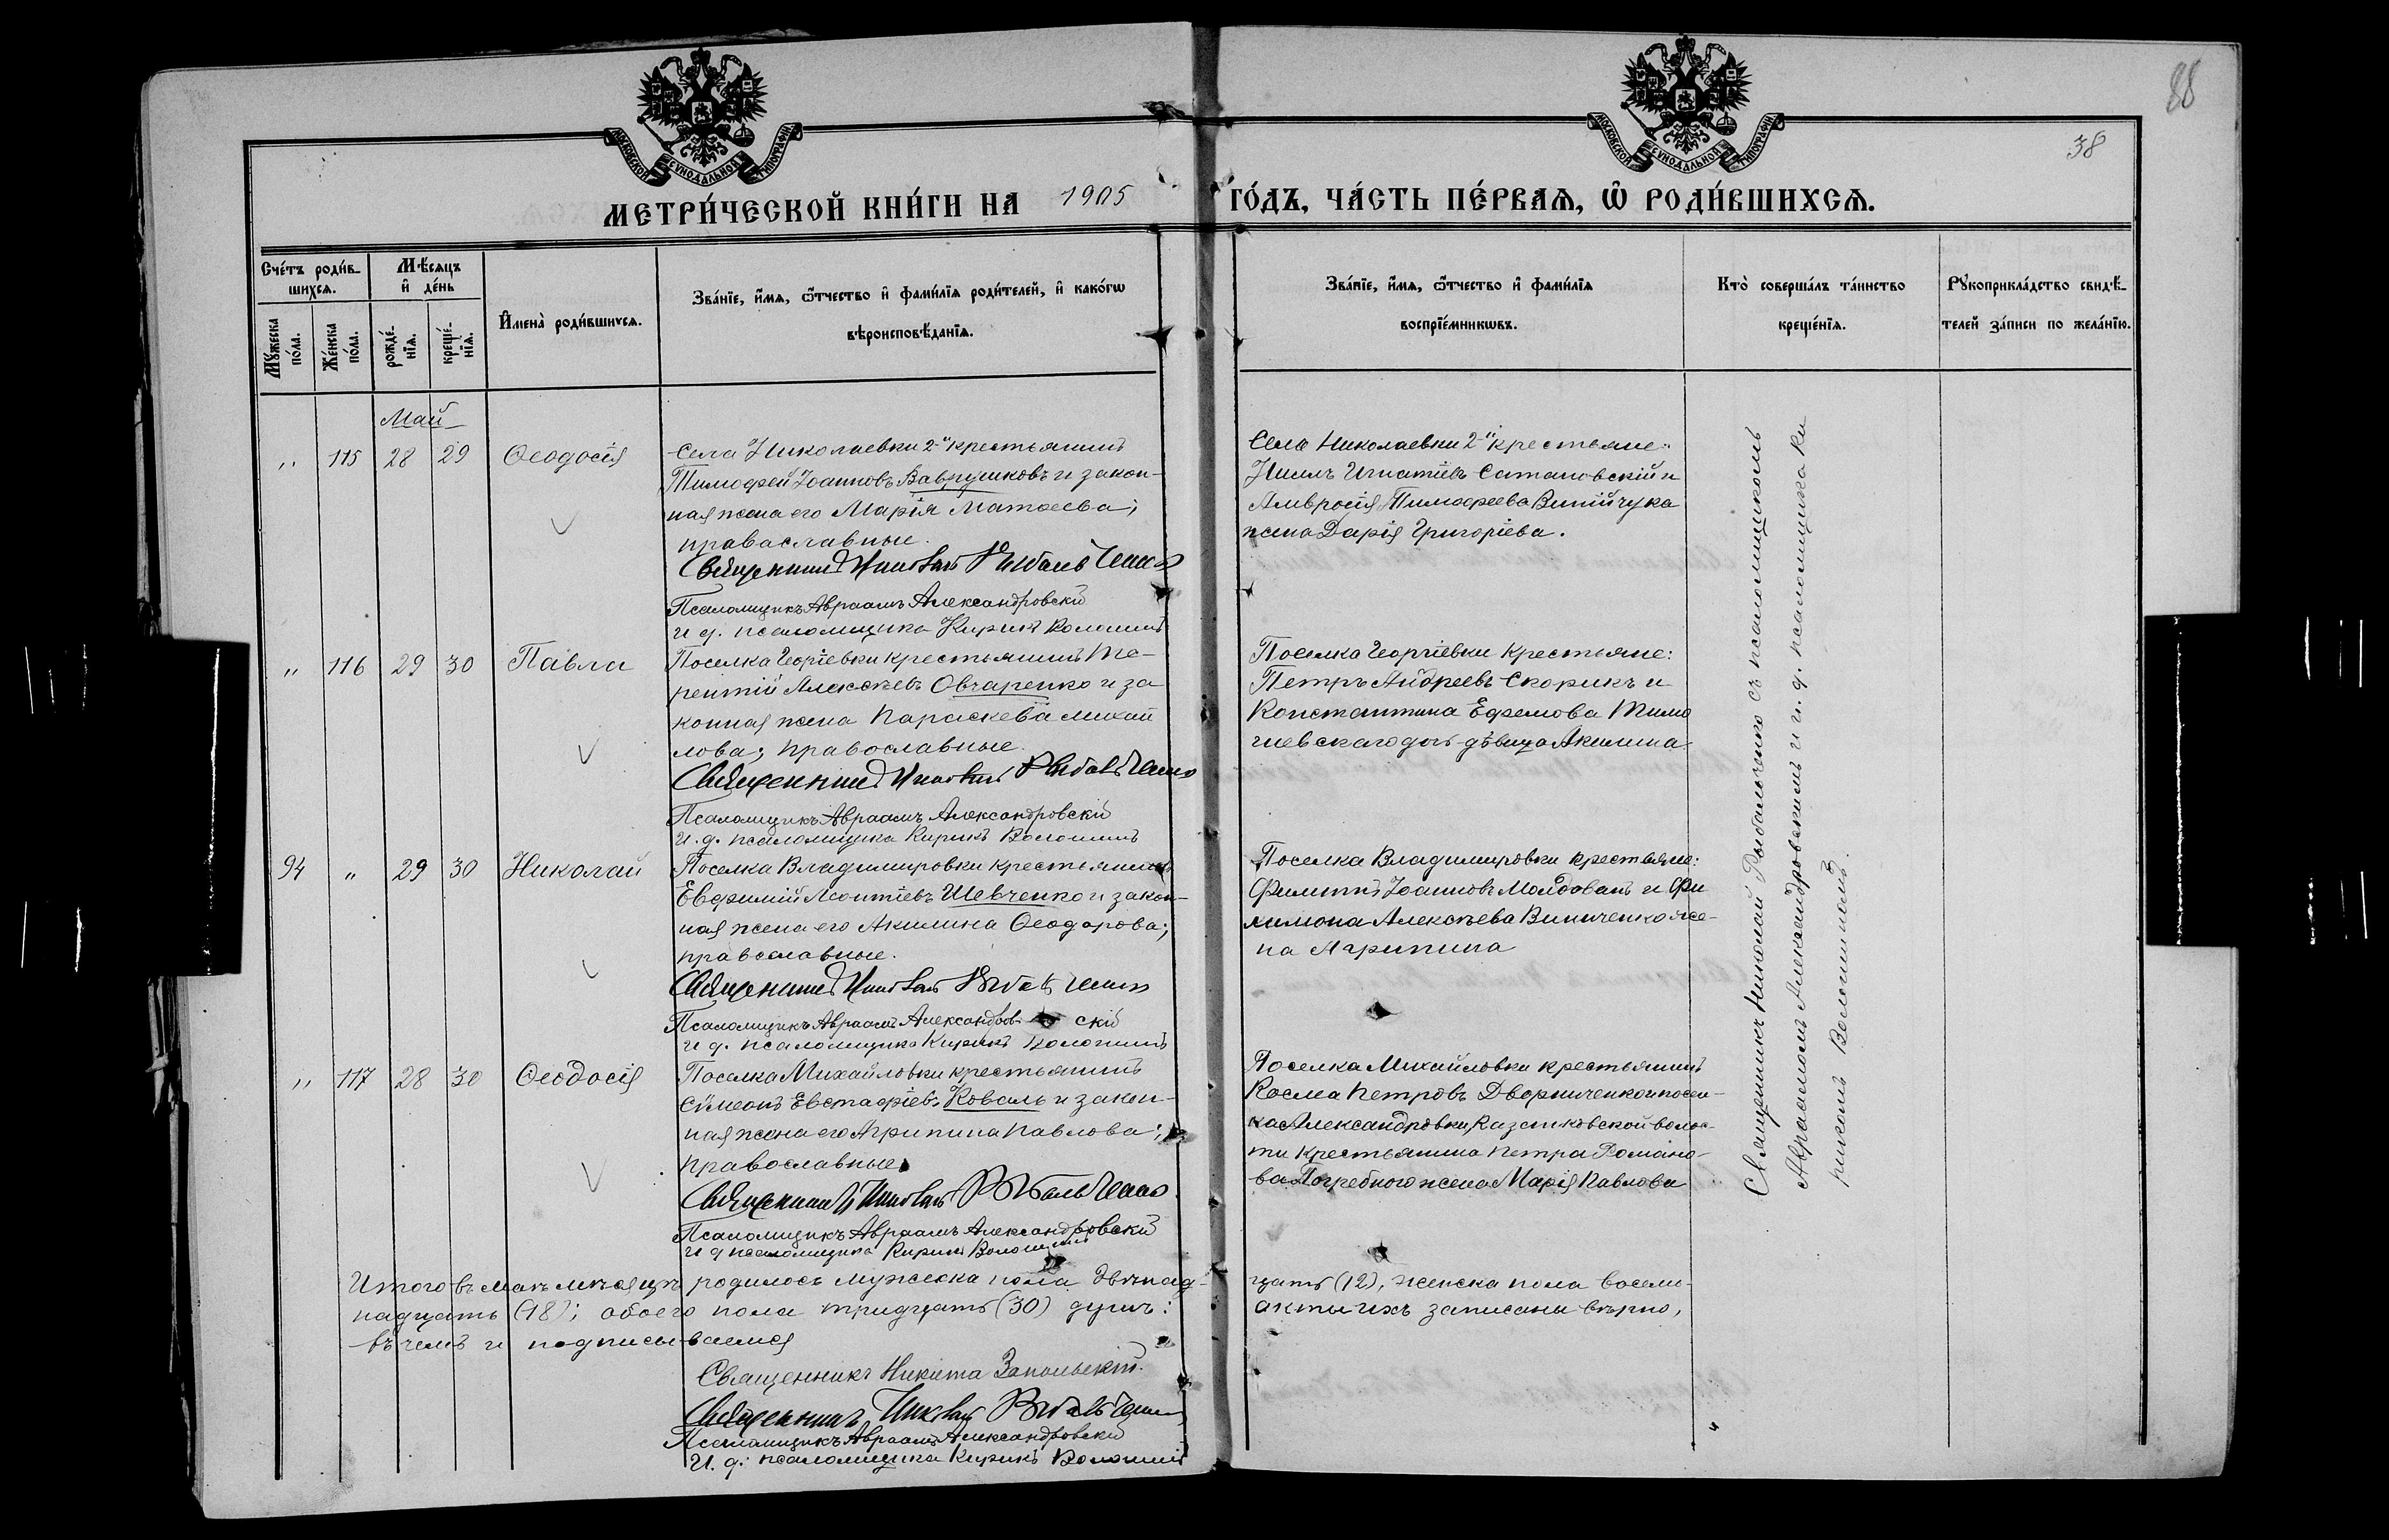 88
38
МОСКОВСКОЙ СѴНОДАЛЬНОЙ ТИПОГРАФІИ.
МОСКОВСКОЙ СѴНОДАЛЬНОЙ ТИПОГРАФІИ.
МЕТРИ́ЧЕСКОЙ КНИ́ГИ НА 1905 ГО́ДЪ, ЧА́СТЬ ПЕ́РВАѦ, Ѽ РОДИ́ВШИХСѦ.
Сче́тъ роди́в-
шихсѧ.
Мꙋ́жеска по́ла.
Же́нска по́ла.
Мѣ́сѧцъ и҆ де́нь
рожде́-нїѧ.
креще́-нїѧ.
И҆мена̀ роди́вшихсѧ.
Зва́нїе, и҆́мѧ, ѻ҆́тчество и҆ фами́лїѧ роди́телей, и҆ како́гѡ
вѣроисповѣ́данїѧ.
Зва́нїе, и҆́мѧ, ѻ҆́тчество и҆ фами́лїѧ
воспрїе́мникѡвъ.
Кто̀ соверша́лъ та́инство
креще́нїѧ.
Рꙋкоприкла́дство свидѣ́-
телей за́писи по жела́нїю.
Май
" 115 28 29 Ѳеодосія
Села Николаевки 2-й крестьянинъ
Тимофей Іоанновъ Ваврушковъ и закон-
ная жена его Марія Матѳеева;
праваславные.
Священникъ Николай Рыбальченко
Псаломщикъ Авраамъ Александровскій
и д. псаломщика Кирикъ Волошинъ
Села Николаевки 2-й крестьяне:
Нилъ Игнатіевъ Сатановскій и
Амвросія Тимофеева Винійчука
жена Дарія Григоріева.
" 116 29 30 Павла
Поселка Георгіевки крестьянинъ Те-
рентій Алексѣевъ Овчаренко и за
конная жена Параскева Михай
лова; православные.
Священникъ Николай Рыбальченко
Псаломщикъ Авраамъ Александровскій
И. д. псаломщика Кирикъ Волошинъ
Поселка Георгіевки крестьяне:
Петръ Андреевъ Скорикъ и
Константина Ефремова Тимо
гиевскаго дочь дѣвица Акилина.
94 " 29 30 Николай
Поселка Владимировки крестьянинъ
Евфимій Леонтіевъ Шевченко и закон-
ная жена его Акилина Ѳеодорова;
православные.
Священникъ Николай Рыбальченко
Псаломщикъ Авраамъ Александровскій
и д. псаломщика Кирикъ Волошинъ
Поселка Владимировки крестьяне:
Филиппъ Іоанновъ Молдованъ и Фи
лимона Алексѣева Виниченко же-
на Агрипина
" 117 28 30 Ѳеодосія
Поселка Михайловки крестьянинъ
Сѵмеонъ Евстафіевъ Коваль и закон-
ная жена его Агрипина Павлова;
православные.
Священникъ Николай Рыбальченко
Псаломщикъ Авраамъ Александровскій
И д псаломщика Кирикъ Волошинъ
Поселка Михайловки крестьянинъ
Косма Петровъ Дворниченко и посел-
ка Александровки, Казанковской волос-
ти крестьянина Петра Романо-
ва Погребного жена Марія Павлова
Священникъ Николай Рыбальченко съ псаломщикомъ
Авраамомъ Александровскимъ и и. д. псаломщика Ки
рикомъ Волошиномъ.
Итого въ маѣ мѣсяцѣ родилось мужеска пола двѣнад-
цать (12), женска пола восем-
надцать (18); обоего пола тридцать (30) душъ:
акты ихъ записаны вѣрно,
въ чемъ и подписываемся
Священникъ Никита Запольскій.
Священникъ Николай Рыбальченко
Псаломщикъ Авраамъ Александровскій
И. д. псаломщика Кирикъ Волошинъ